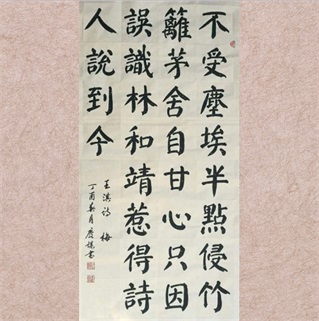 不受塵埃半點侵竹
籬茅舍自甘心只因
誤識林和靖惹得詩
人說到今
王淇詩 梅
丁酉年春月慶瑞書